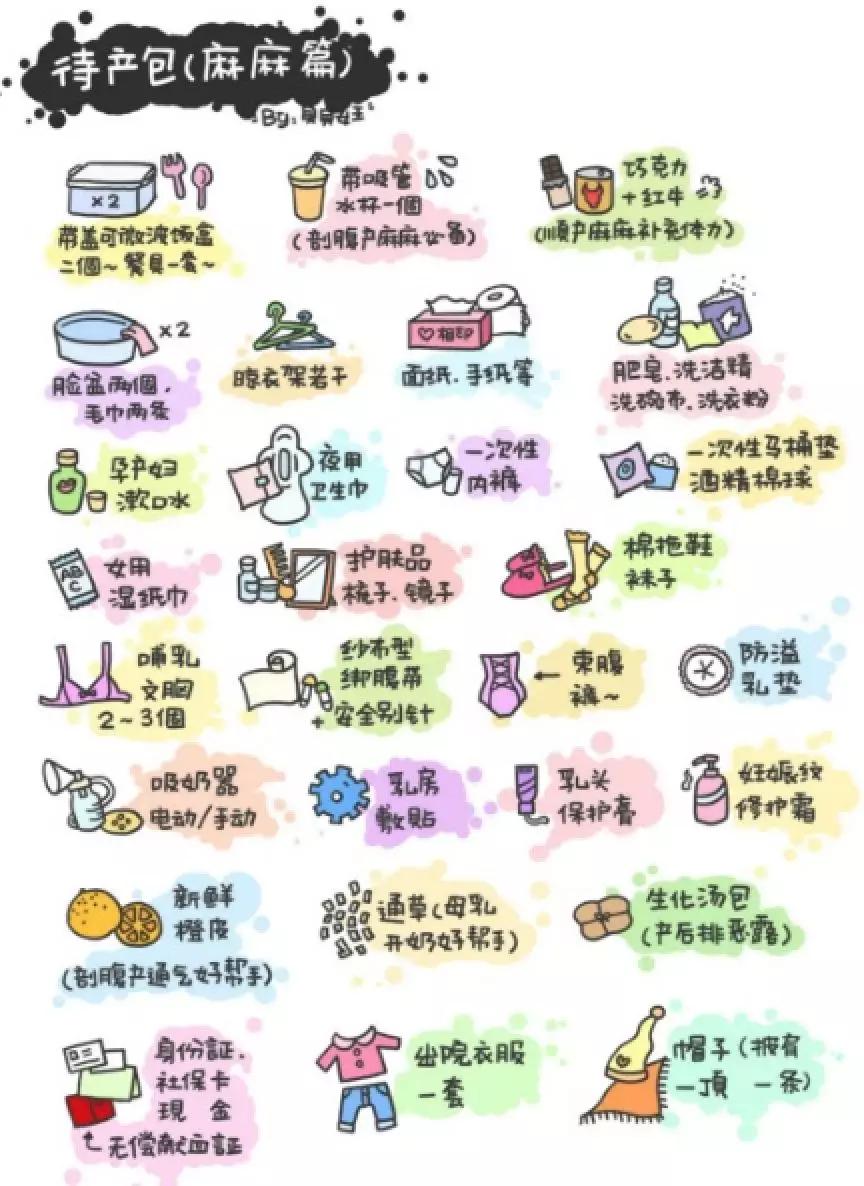 待产包(麻麻篇)
By:
×2
带盖可微波饭盒
二個～餐具一套～
带吸管
水杯一個
(剖腹产麻麻必备)
巧克力
+红牛
(顺产麻麻补充体力)
×2
脸盆两個.
毛巾两条
晾衣架若干
相印
面纸.手纸等
肥皂.洗洁精
洗碗布.洗衣粉
孕产妇
漱口水
夜用
卫生巾
一次性
内裤
一次性马桶垫
酒精棉球
AB
C
女用
湿纸巾
护肤品
梳子.镜子
棉拖鞋
袜子
哺乳
文胸
2～3個
纱布型
绑腹带
+安全别针
束腹
裤～
防溢
乳垫
吸奶器
电动/手动
乳房
敷贴
乳头
保护膏
妊娠纹
修护霜
新鲜
橙皮
(剖腹产通气好帮手)
通草(母乳
开奶好帮手)
生化汤包
(产后排恶露)
身份証.
社保卡
現 金
无偿献血証
出院衣服
一套
帽子(披肩
一頂 一条)